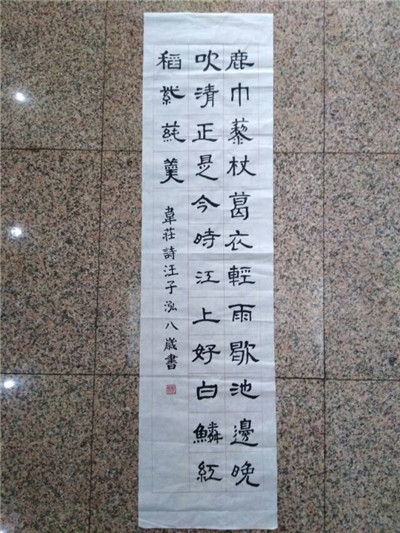 鹿巾藜杖葛衣輕雨歇池邊晚
吹清正是今時江上好白鱗紅
稻紫蒓羹
韋莊詩汪子泓八歲書